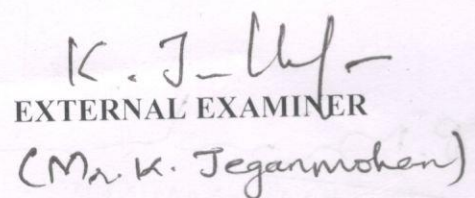 K. J
EXTERNAL EXAMINER
(Mr. K. Jeganmohan)